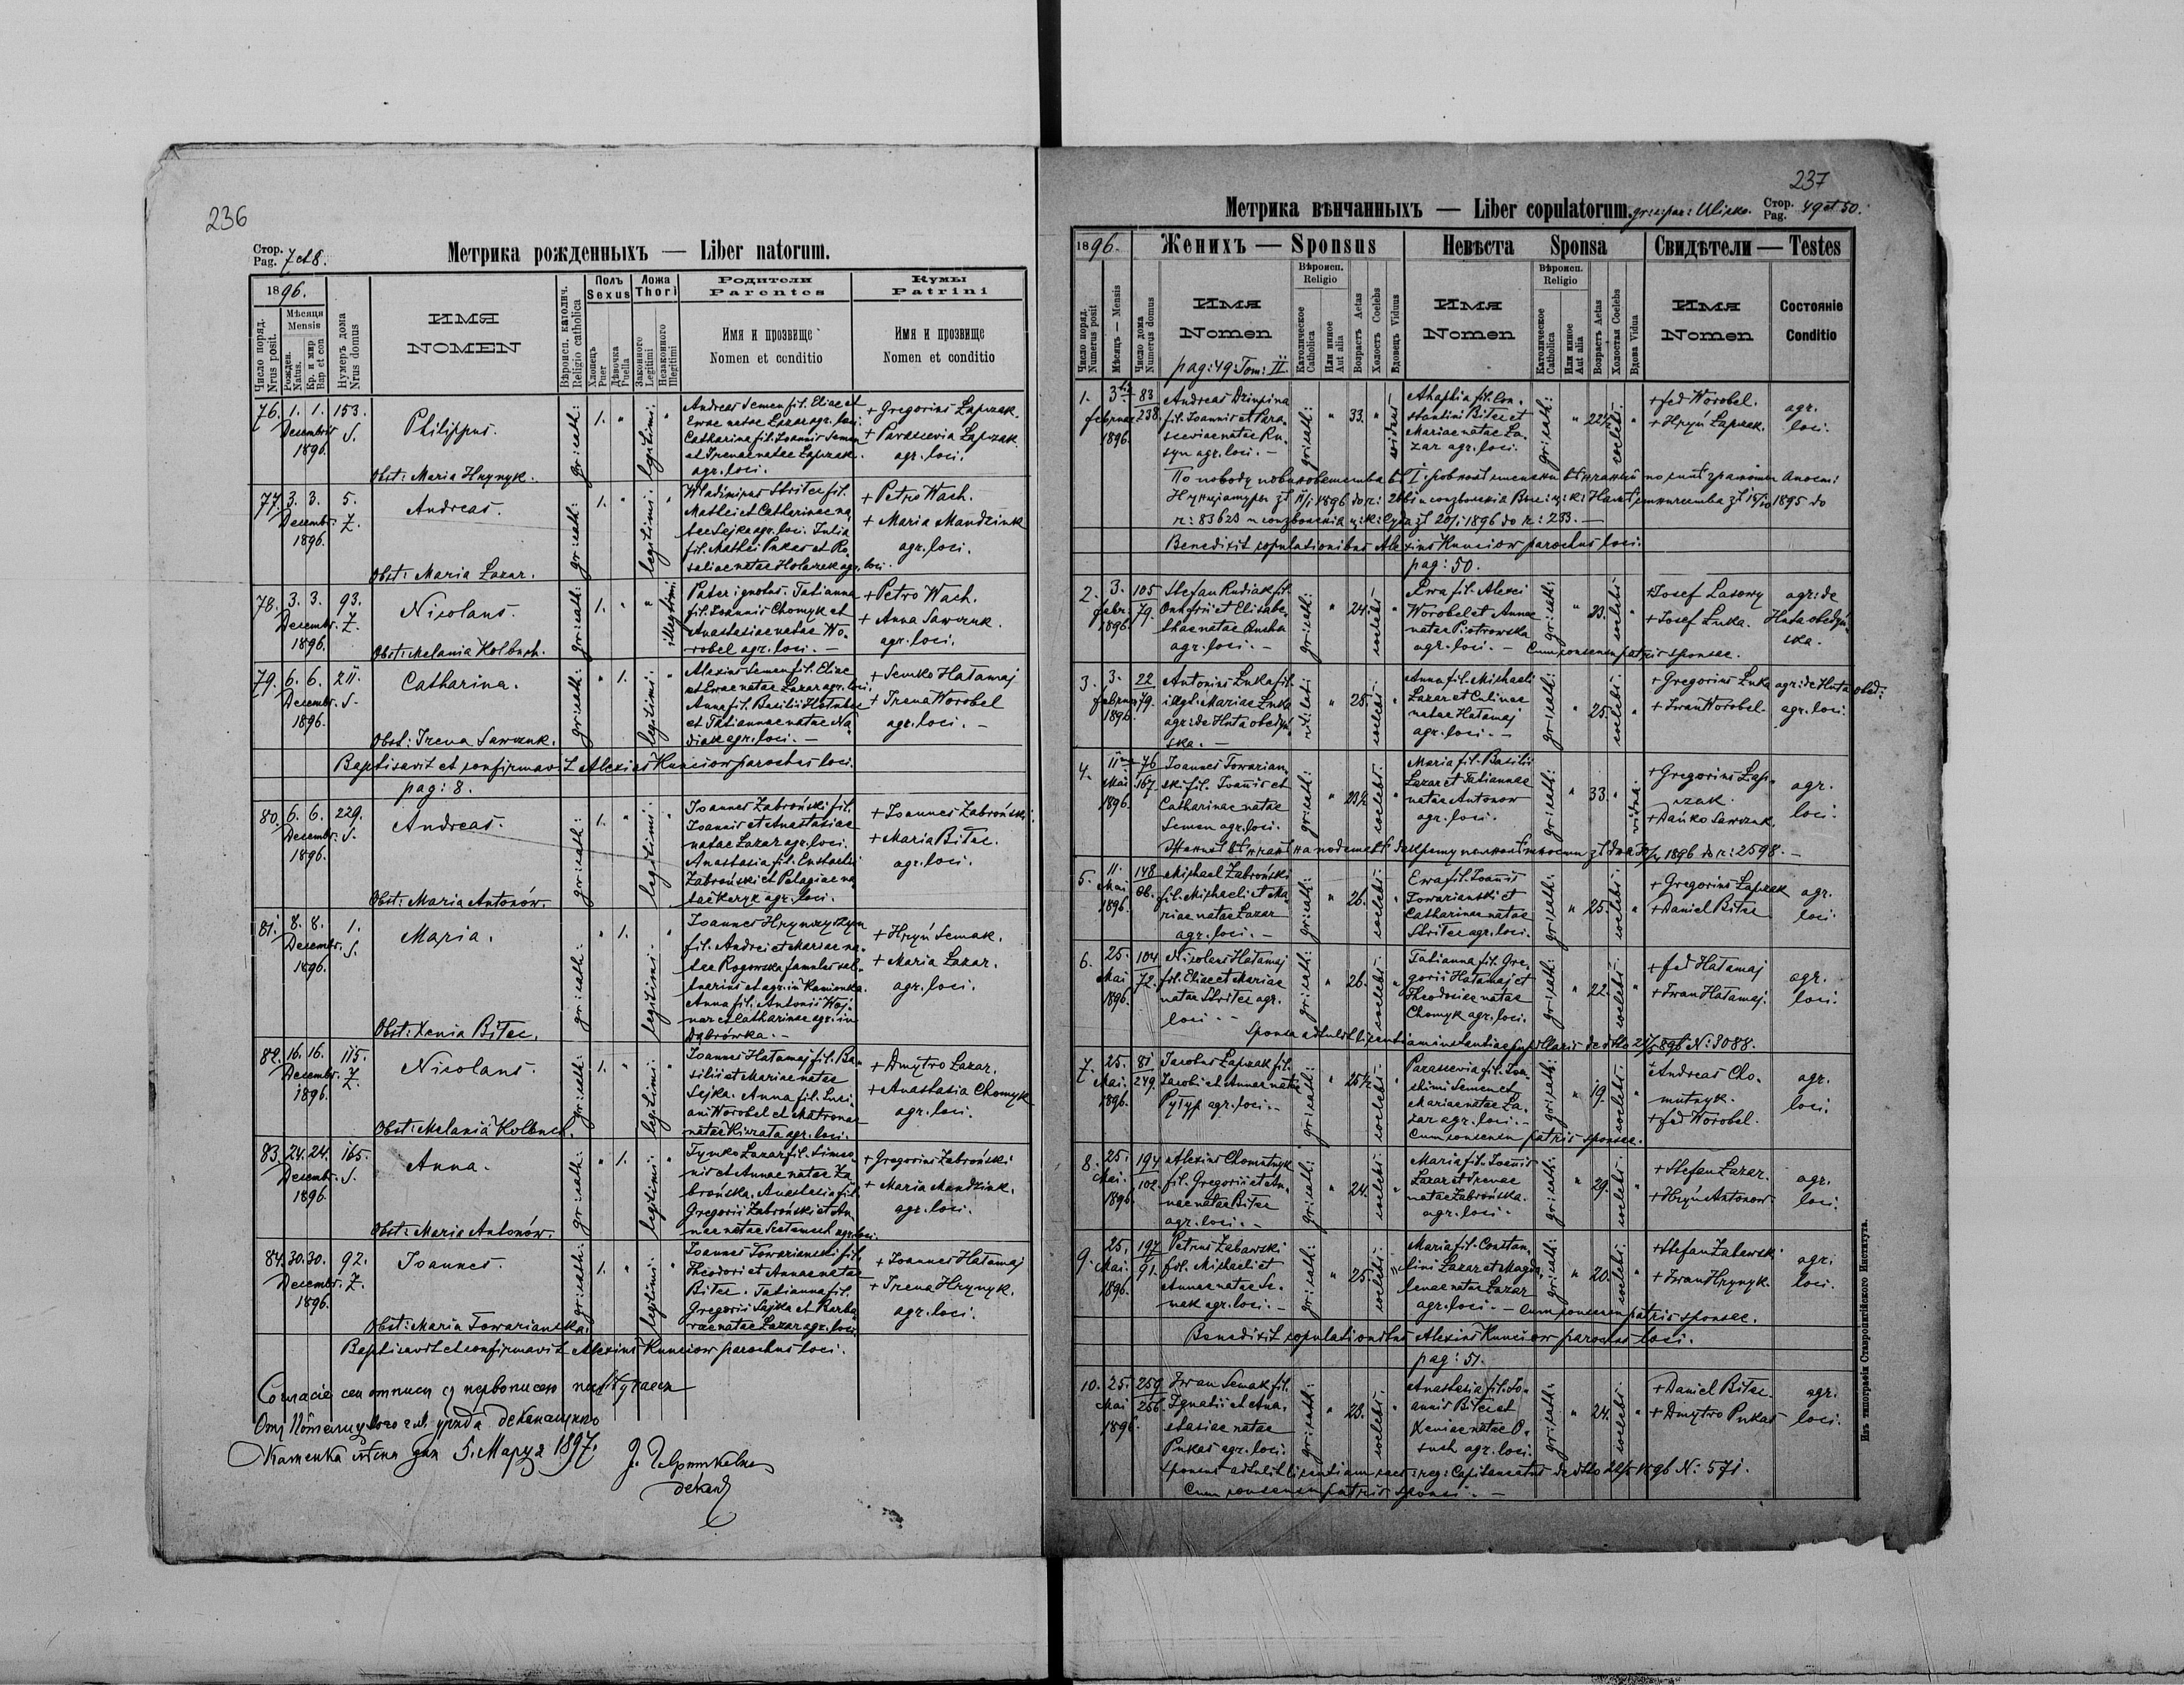 236
Стор.
Pag. 7 et 8.
Метрика рожденныхъ — Liber natorum.
1896.
Число поряд.
Nrus posit.
Мѣсяця
Mensis
Рожден.
Natus.
Кр. и мир
Bap et con
Нумеръ дома
Nrus domus
ИМЯ
NOMEN
Вѣроисп. католич.
Religio catholica
Полъ
Sexus
Хлопецъ
Puer
Дѣвочка
Puella
Ложа
Thori
Законного
Legitimi
Незаконного
Illegitimi
Родители
Parentes
Имя и прозвище
Nomen et conditio
Кумы
Patrini
Имя и прозвище
Nomen et conditio
76. 1. 1. 153.
Decembris S.
1896.
Philippus.
gr: cath:
1. "
legitimi:
Andreas Semen fil. Eliae et
Evae natae Lazar agr. loci.
Catharina fil. Joannis Semen
et Irenae natae Łapczak.
agr. loci.
+ Gregorius Łapczak.
+ Parascevia Łapczak
agr. loci.
Obst: Maria Hrynyk.
77. 3. 3. 5.
Decembr. Z.
1896.
Andreas.
gr: cath:
1. "
legitimi:
Wladimirus Striter fil.
Mathei et Catharinae na
tae Sejka agr. loci. Julia
fil. Mathei Pukas et Ro
saliae natae Holaczek agr. loci.
+ Petro Wach.
+ Maria Mandziuk
agr. loci.
Obst: Maria Lazar.
78. 3. 3. 93.
Decembr. Z.
1896.
Nicolaus.
gr: cath:
1. "
illegitimi:
Pater ignotus. Tatianna
fil. Joannis Chomyk et
Anastasiae natae Wo-
robel agr. loci. —
+ Petro Wach.
+ Anna Sawczuk.
agr. loci.
Obst: Melania Kolbuch.
79. 6. 6. 211.
Decembr. S.
1896.
Catharina.
gr: cath:
" 1.
legitimi:
Alexius Semen fil. Eliae
et Evae natae Lazar agr. loci.
Anna fil. Basilii
et Tatiannae natae Na
diak agr. loci. —
+ Semko Hałamaj
+ Irena Worobel
agr. loci. —
Obst: Irena Sawczuk.
Baptisavit et confirmavit Alexius Kunciow parochus loci.
pag: 8.
80. 6. 6. 229.
Decembr. S.
1896.
Andreas.
gr: cath:
1. "
legitimi:
Joannes Zabroński fil.
Joannis et Anastasiae
natae Lazar agr. loci.
Anastasia fil. Eustachi
Zabroński et Pelagiae na
tae Keryk agr. loci.
+ Joannes Zabroński
+ Maria Biłec.
agr. loci.
Obst: Maria Antonów.
81. 8. 8. 1.
Decembr. S.
1896.
Maria.
gr: cath:
" 1.
legitimi:
Joannes Hrynczyszyn
fil. Andrei et Mariae na-
tae Rogowska famulus sal-
tuarius et agr. in Kamionka.
Anna fil. Antonii Woj-
nar et Catharinae agr. in
Dąbrówka. —
+ Hryń Semak.
+ Maria Lazar.
agr. loci.
Obst: Xenia Biłec.
82. 16. 16. 115.
Decembr. Z.
1896.
Nicolaus.
gr: cath:
1. "
legitimi:
Joannes Hałamaj fil. Ba-
silii et Mariae natae
Sejka. Anna fil. Luci-
ani Worobel et Matronae
natae Kiwrata agr. loci.
+ Dmytro Lazar.
+ Anastasia Chomyk
agr. loci.
Obst: Melania Kolbuch.
83. 24. 24. 165.
Decembr. S.
1896.
Anna.
gr: cath:
" 1.
legitimi:
Tymko Lazar fil. Simeo-
nis et Annae natae Za
brońska. Anastasia fil.
Gregorii Zabroński et An
nae natae agr. loci.
+ Gregorius Zabroński
+ Maria Mandziuk.
agr. loci.
Obst: Maria Antonów.
84. 30. 30. 92.
Decembr. Z.
1896.
Joannes.
gr: cath:
1. "
legitimi:
Joannes Towarianski fil.
Theodori et Annae natae
Biłec. Tatianna fil.
Gregorii Sajka et Barba
rae natae Lazar agr. loci.
+ Joannes Hałamaj
+ Irena Hrynyk.
agr. loci.
Obst: Maria Towarianska.
Baptisavit et confirmavit Alexius Kunciow parochus loci.
Согласіе сеи отписи съ первописею
деканского
Каменка дня 5. Марта 1897.
декан
237
Метрика вѣнчанныхъ — Liber copulatorum. gr: c: par: Ulicko.
Стор.
Pag. 49 et 50.
1896.
Женихъ — Sponsus
Невѣста Sponsa
Свидѣтели — Testes
Число поряд.
Numerus posit
Мѣсяць — Mensis
Число дома
Numerus domus
ИМЯ
Nomen
pag: 49. Tom: II.
Вѣроисп.
Religio
Католическое
Catholica
Или инное
Aut alia
Возрастъ Aetas
Холостъ Coelebs
Вдовець Viduus
ИМЯ
Nomen
Вѣроисп.
Religio
Католическое
Catholica
Или инное
Aut alia
Возрастъ Aetas
Холостая Coelebs
Вдова Vidua
ИМЯ
Nomen
Состояніе
Conditio
1. 3tia 83
februar 238.
1896.
Andreas Dziupina
fil. Joannis et Para-
sceviae natae Ru-
syn agr. loci. —
gr: cath:
" 33. "
viduus
Ahaphia fil. Con-
stantini Biłec et
Mariae natae La-
zar agr. loci.
gr: cath:
" 22½
coelebs
+ fed Worobel.
+ Hryń Łapczak.
agr.
loci.
1896 до ч: 1895 до
ч: 83623 20/1 1896 до ч: 233. —
Benedixit copulationibus Alexius Kunciow parochus loci.
pag: 50.
2. 3. 105
febr. 79.
1896.
Stefan Rudiak fil.
Onufrii et Elisabe-
thae natae
agr. loci. —
gr: cath:
" 24.
coelebs
Ewa fil. Alexi
Worobel et Annae
natae Piotrowska
agr. loci. —
gr: cath:
" 23.
coelebs
Cum consensu patris sponsae.
+ Josef Lasowy
+ Josef Luka.
agr: de
Huta obedyń
ska.
3. 3. 22
februar 79.
1896.
Antonius Luka fil.
illegit: Mariae Luka
agr: de Huta obedyń
ska. —
rit: lat:
" 28.
coelebs
Anna fil. Michaeli
Lazar et Celinae
natae Hałamaj
agr. loci. —
gr: cath:
" 25.
coelebs
+ Gregorius Luka
+ Iwan Worobel
agr: de Huta obed:
agr. loci.
4. 11ma 76
Mai 167.
1896.
Joannes Towarian-
ski fil. Joannis et
Catharinae natae
Semen agr. loci.
gr: cath:
" 23½
coelebs
Maria fil. Basilii
Lazar et Tatiannae
natae Antonow
agr. loci.
gr: cath:
" 33. "
vidua
+ Gregorius Łap-
czak.
+ Dańko Sawczuk.
agr.
loci.
1896 до ч: 2598. —
5. 11. 148
Mai 86.
1896.
Michael Zabroński
fil. Michaeli et Ma
riae natae Lazar
agr. loci. —
gr: cath:
" 26.
coelebs
Ewa fil. Joannis
Towarianski et
Catharinae natae
Striter agr. loci.
gr: cath:
" 25.
coelebs
+ Gregorius Łapczak
+ Daniel Biłec
agr.
loci.
6. 25. 104
Mai 72.
1896.
Nicolaus Hałamaj
fil. Eliae et Mariae
natae Striter agr.
loci. —
gr: cath:
" 26.
coelebs
Tatianna fil. Gre-
gorii Hałamaj et
Theodosiae natae
Chomyk agr. loci.
gr: cath:
" 22.
coelebs
+ fed Hałamaj
+ Iwan Hałamaj.
agr.
loci.
Sponsa adtulit licentiam instantiae pupillaris de dtto 1896 N: 3088.
7. 25. 81
Mai. 249.
1896.
Jacobus Łapczak fil.
Jacobi et Annae natae
Pytyp agr. loci. —
gr: cath:
" 25½
coelebs
Parascevia fil. Joa-
chimi Semen et
Mariae natae La-
zar agr. loci. —
gr: cath:
" 19.
coelebs
Cum consensu patris sponsae.
+ Andreas Cho-
mutnyk.
+ fed Worobel.
agr.
loci.
8. 25. 194
Mai. 102.
1896.
Alexius Chomutnyk
fil. Gregorii et An-
nae natae Biłec
agr. loci. —
gr: cath:
" 24.
coelebs
Maria fil. Joannis
Lazar et Irenae
natae Zabrońska.
agr. loci.
gr: cath:
" 29.
coelebs
+ Stefan Lazar.
+ Hryń Antonow.
agr.
loci.
9. 25. 197
Mai. 91.
1896.
Petrus Zabawski
fil. Michaeli et
Annae natae Se-
mak agr. loci. —
gr: cath:
" 25.
coelebs
Maria fil. Constan-
tini Lazar et Magda
lenae natae Lazar
agr. loci. — Cum consensu patris sponsae.
gr: cath:
" 20.
coelebs
+ Stefan Zabawski
+ Iwan Hrynyk.
agr.
loci.
Benedixit copulationibus Alexius Kunciow parochus loci.
pag: 51.
10. 25. 259
Mai 256.
1896.
Iwan Semak fil.
Ignatii et Ana-
stasiae natae
Pukas agr. loci.
gr: cath:
" 23.
coelebs
Anastasia fil. Jo-
annis Biłec et
Xeniae natae P.
such agr. loci.
gr: cath:
" 24.
coelebs
+ Daniel Biłec.
+ Dmytro Pukas
agr.
loci.
Sponsus adtulit licentiam caes: reg: Capitaneatus de dtto 1896 N: 571.
Cum consensu patris sponsi. —
Изъ типографіи Ставропигійского Института.